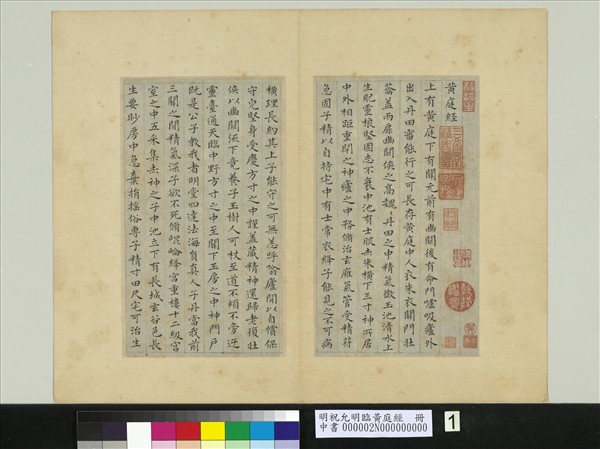 黃庭經
上有黃庭下有關元前有幽關後有命門噓吸廬外
出入丹田審能行之可長存黃庭中人衣朱衣關門壯
籥蓋兩扉幽關俠之高魏魏丹田之中精氣微玉池清水上
生肥靈根堅固志不衰中池有士服赤朱橫下三寸神所居
中外相距重閇之神廬之中務脩治玄廱氣管受精符
急固子精以自持宅中有士常衣絳子能見之不可病
橫理長約其上子能守之可無恙呼噏廬間以自償保
守完堅身受慶方寸之中謹蓋藏精神還歸老復壯
俠以幽闕流下竟養子玉樹人可杖至道不煩不旁迕
靈臺通天臨中野方寸之中至關下玉房之中神門戶
既是公子教我者明堂四達法海員真人子丹當我前
三關之間精氣深子欲不死脩崐崘絳宮重樓十二級宮
室之中五采集赤神之子中池立下有長城玄谷邑長
生要眇房中急棄捐搖俗專子精寸田尺宅可治生
明祝允明臨黃庭經 冊
中書 000002N000000000
1